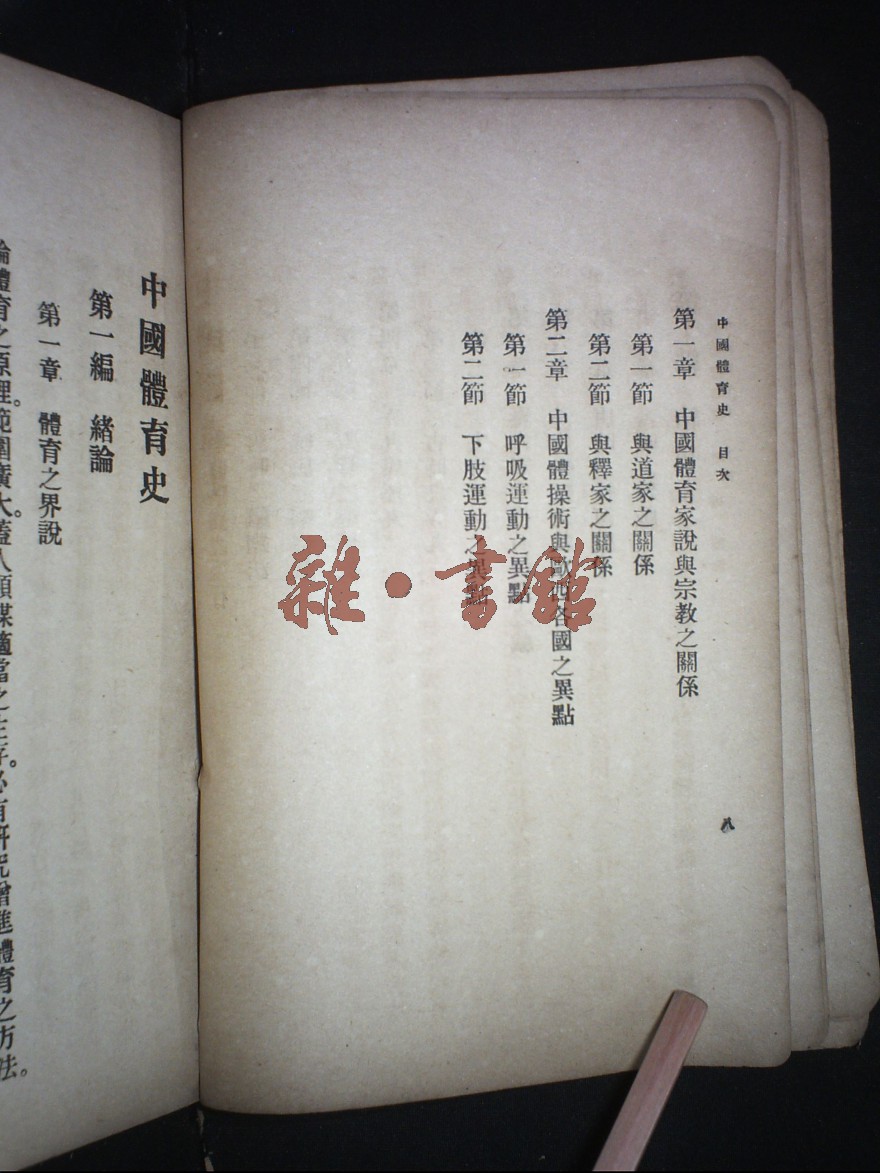 中國體育史 目次
第一章 中國體育家說與宗教之關係
第一節 與道家之關係
第二節 與釋家之關係
第二章 中國體操術與歐洲各國之異點
第一節 呼吸運動之異點
第二節 下肢運動之異點
八
雜·書館
中國體育史
第一編 緒論
第一章 體育之界說
論體育之原理。範圍廣大。蓋人類謀適當之生存。必有研究增進體育之方法。